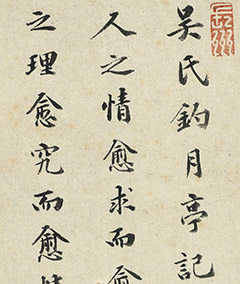 吳氏釣月亭記
人之情愈求而愈
之理愈究而愈精